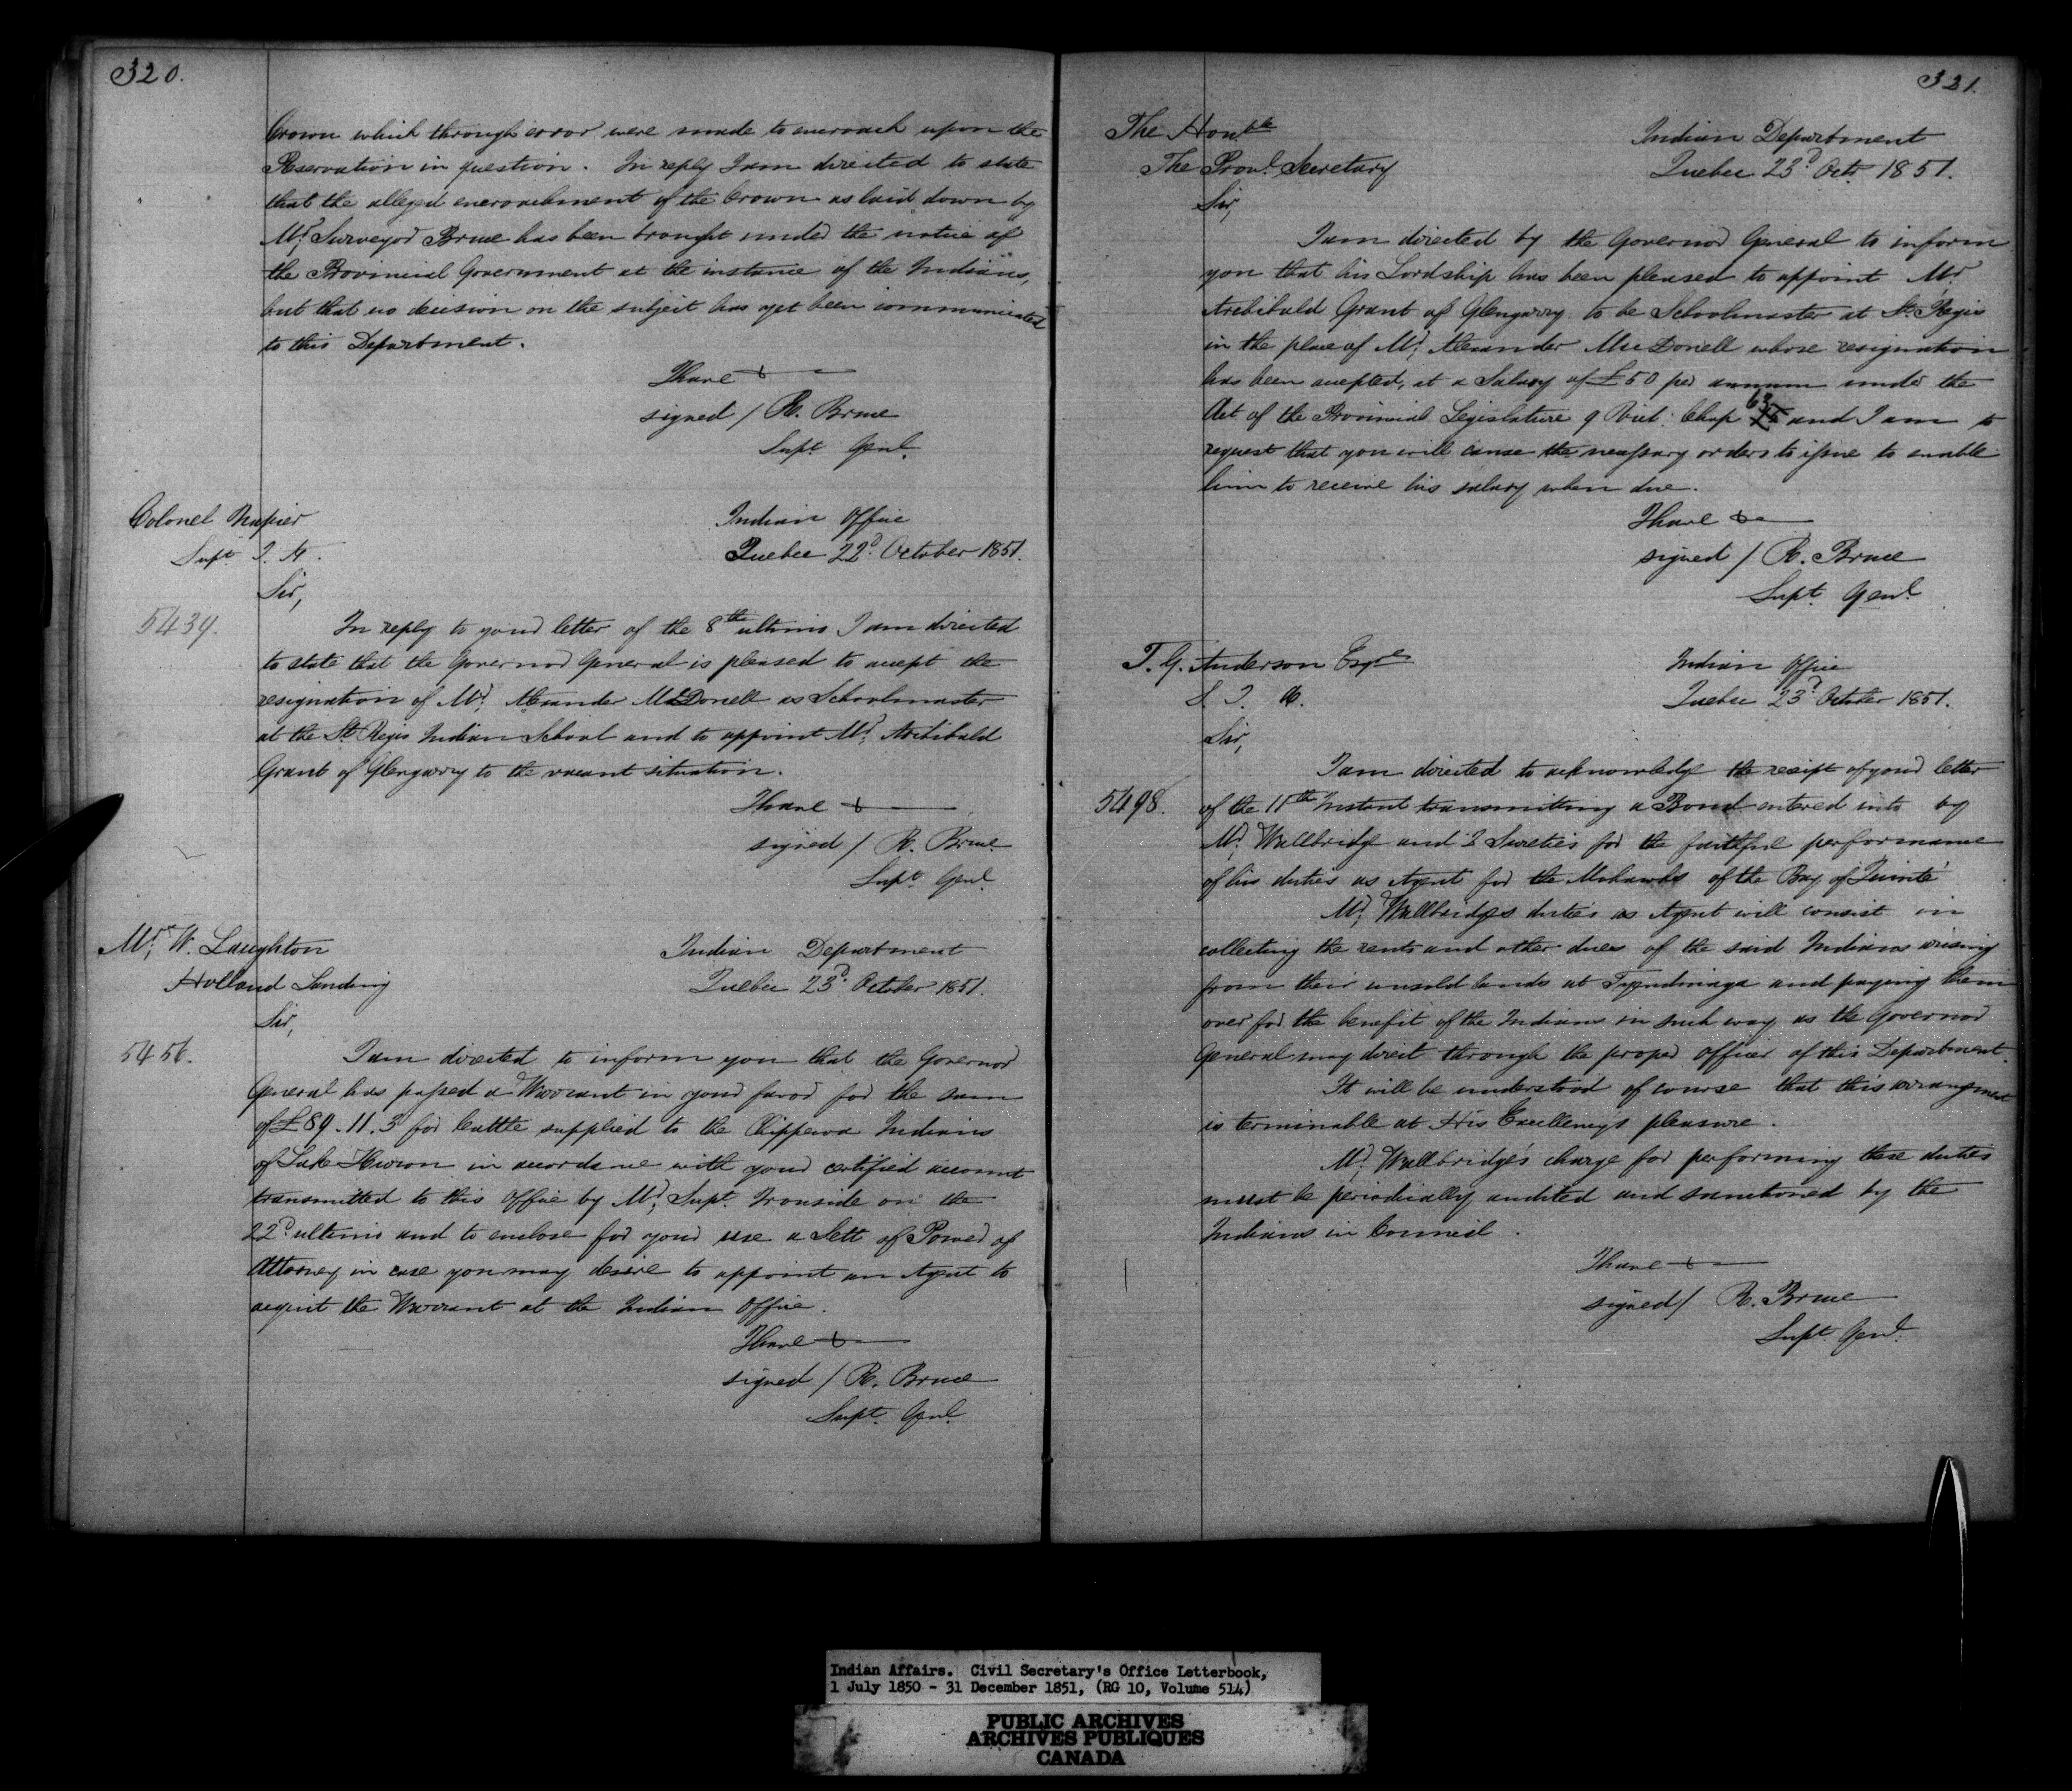 320.
Crown which through error were made to encroach upon the
Reservation in question. In reply I am directed to state
that the alleged encroachment of the Crown as laid down by
Mr. Surveyor Bruce has been brought under the notice of
the Provincial Government at the instance of the Indians,
but that no decision on the subject has yet been communicated
to this Department.
I have &
signed / R. Bruce
Supt. Genl.
Colonel Napier
Supt. I. A.
Indian Office
Quebec 22d. October 1851.
Sir,
5439.
In reply to your letter of the 8th ultimo I am directed
to state that the Governor General is pleased to accept the
resignation of Mr. Alexander McDonell as Schoolmaster
at the St. Regis Indian School and to appoint Mr. Archibald
Grant of Glengarry to the vacant situation.
I have &
signed / R. Bruce
Supt. Genl.
Mr. W. Laughton
Holland Landing
Indian Department
Quebec 23d. October 1851.
Sir,
5456.
I am directed to inform you that the Governor
General has passed a Warrant in your favor for the sum
of £89.11.3 for Cattle supplied to the Chippewa Indians
of Lake Huron in accordance with your certified account
transmitted to this Office by Mr. Supt. Ironside on the
22d. ultimo and to enclose for your use a Sett of Power of
Attorney in case you may desire to appoint an Agent to
acquit the Warrant at the Indian Office.
I have &
signed / R. Bruce
Supt. Genl.
321.
The Honble
The Provl. Secretary
Indian Department
Quebec 23d. Octr. 1851.
Sir,
I am directed by the Governor General to inform
you that his Lordship has been pleased to appoint Mr.
Archibald Grant of Glengarry to be Schoolmaster at St. Regis
in the place of Mr. Alexander MacDonell whose resignation
has been accepted, at a Salary of £50 per annum under the
Act of the Provincial Legislature 9 Vict. Chap 63 and I am to
request that you will cause the necessary orders to issue to enable
him to receive his salary when due.
I have &
signed / R. Bruce
Supt. Genl.
T. G. Anderson Esqre
S. I. A.
Indian Office
Quebec 23d October 1851.
Sir,
5498.
I am directed to acknowledge the receipt of your letter
of the 11th Instant transmitting a Bond entered into by
Mr. Wallbridge and 2 Sureties for the faithful performance
of his duties as Agent for the Mohawks of the Bay of Quinté
Mr. Wallbridges duties as Agent will consist in
collecting the rents and other dues of the said Indians arising
from their unsold lands at Tyendinaga and paying them
over for the benefit of the Indians in such way as the Governor
General may direct through the proper Officer of this Department.
It will be understood of course that this arrangement
is terminable at His Excellency's pleasure.
Mr. Wallbridge's charge for performing these duties
must be periodically audited and sanctioned by the
Indians in Council.
I have &
signed / R. Bruce
Supt. Genl.
Indian Affairs. Civil Secretary's Office Letterbook,
1 July 1850 - 31 December 1851, (RG 10, Volume 514)
PUBLIC ARCHIVES
ARCHIVES PUBLIQUES
CANADA